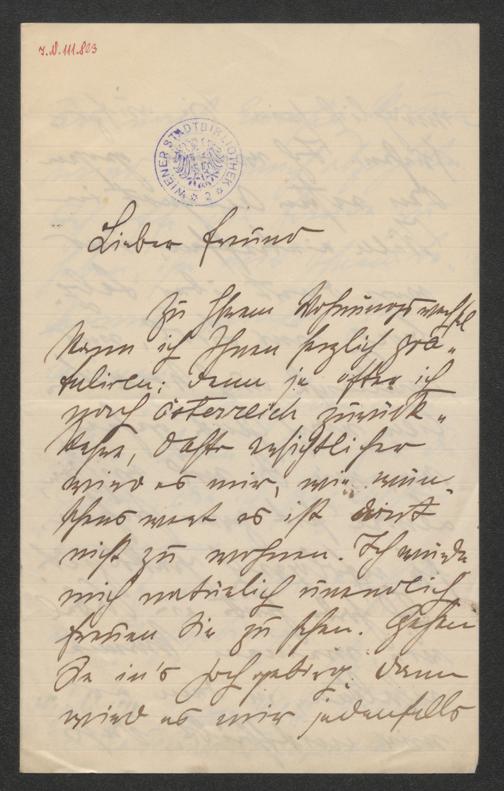 J.N. 111.803
WIENER STADTBIBLIOTHEK
2
Lieber Freund
Zu Ihrem Wohnungswechsel
kann ich Ihnen herzlich gra„
tuliren; denn je öfter ich
nach Österreich zurück„
kehre, desto ersichtlicher
wird es mir, wie wün
schenswert es ist dort
nicht zu wohnen. Ich würde
mich natürlich unendlich
freuen Sie zu sehen. Gehen
Sie in's Hochgebirg, dann
wird es mir jedenfalls